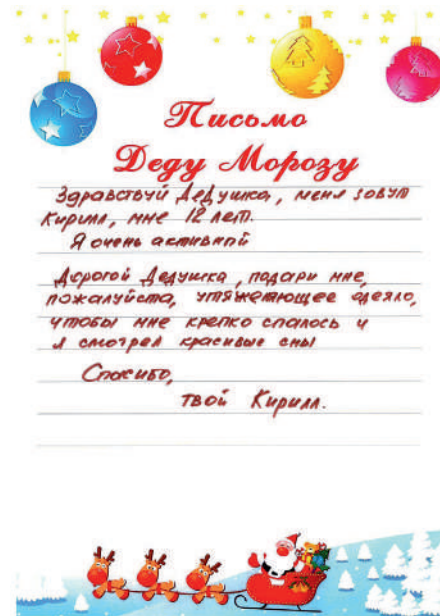 Письмо
Деду Морозу
Здравствуй Дедушка, меня зовут
Кирилл, мне 12 лет.
Я очень активный
Дорогой Дедушка, подари мне,
пожалуйста, утяжеляющее одеяло,
чтобы мне крепко спалось и
я смотрел красивые сны
Спасибо,
твой Кирилл.